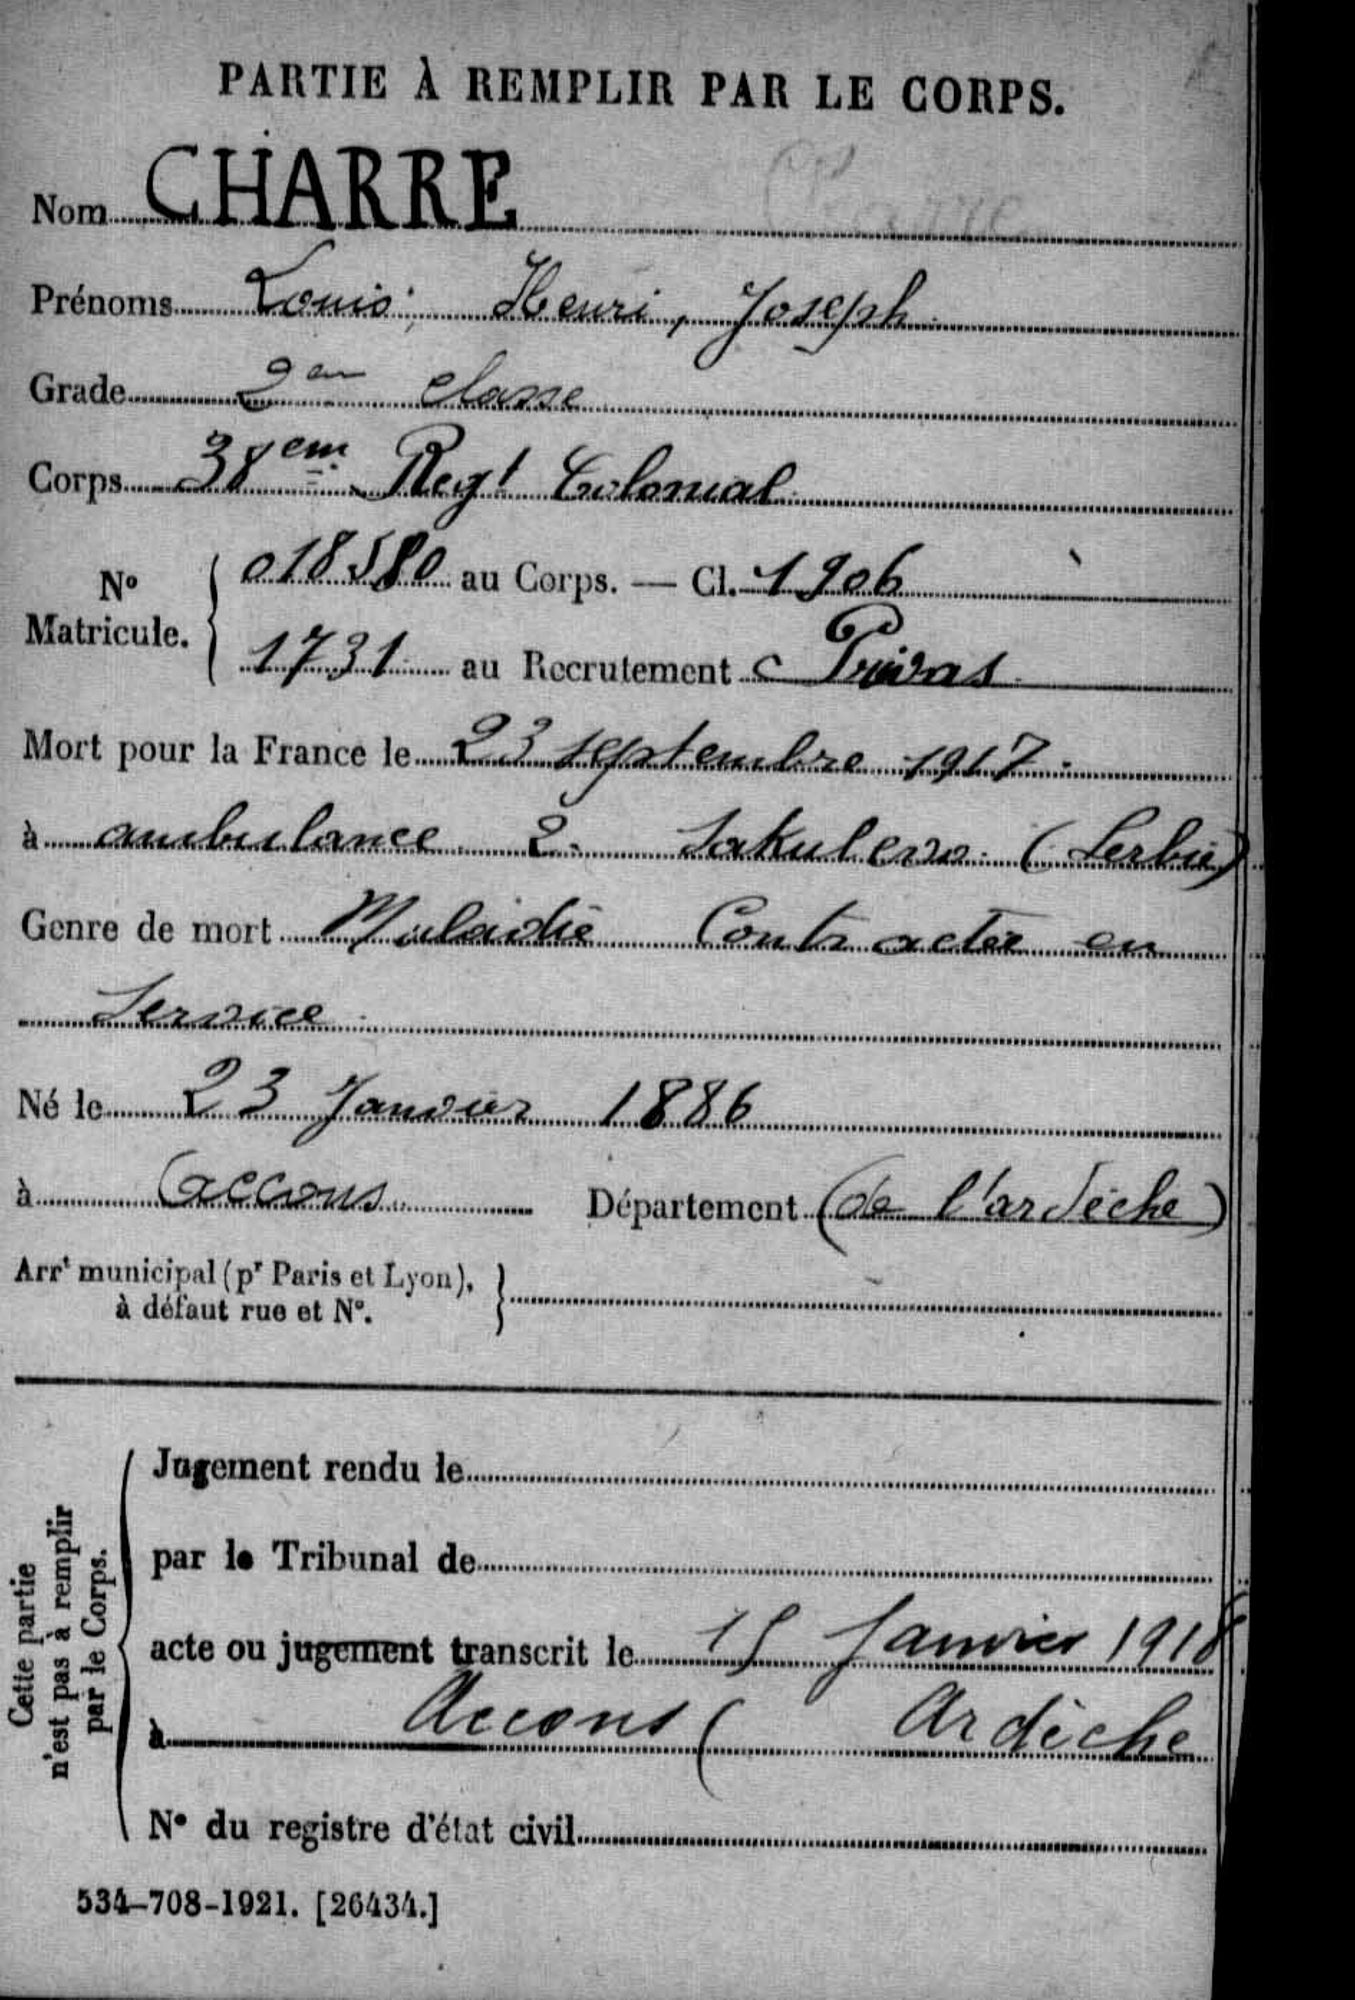 PARTIE À REMPLIR PAR LE CORPS.
Nom CHARRE
Prénoms Louis, Henri, Joseph
Grade 2em classe
Corps 38em Regt Colonial
N° Matricule. 018580 au Corps. — Cl. 1906
1731 au Recrutement Privas
Mort pour la France le 23 septembre 1917.
à ambulance 2. Sakulevo (Serbie)
Genre de mort Maladie Contractée en
Service
Né le 23 Janvier 1886
à accons Département (de l'ardèche)
Arrt municipal (pr Paris et Lyon),
à défaut rue et N°.
Cette partie
n'est pas à remplir
par le Corps.
Jugement rendu le
par le Tribunal de
acte ou jugement transcrit le 15 Janvier 1918
à Accons ( Ardèche
N° du registre d'état civil
534-708-1921. [26434.]